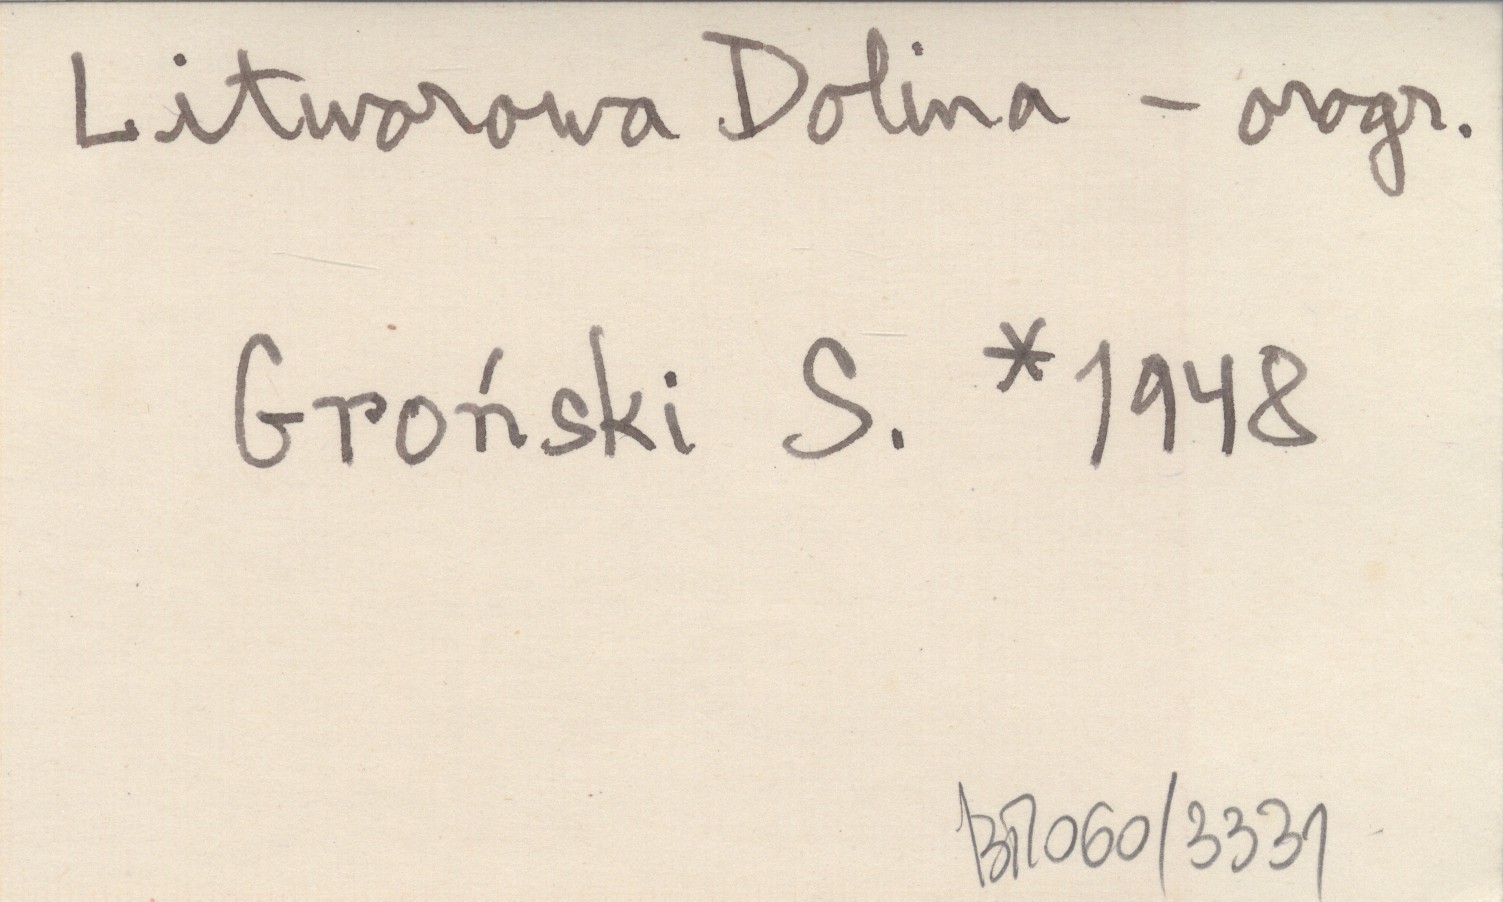 Litworowa Dolina - orogr.
Groński S. *1948
060/3331